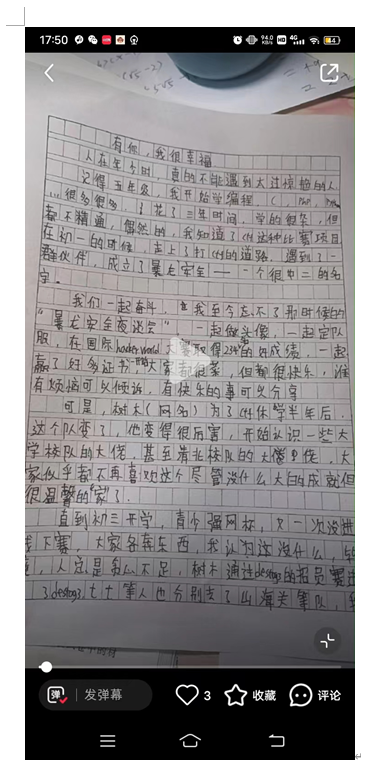 17:50
94.0
KB/s
HD
4G
4
有你，我很幸福
人在年少时，真的不能遇到太过惊艳的人
记得五年级，我开始学编程（PHP
很多很多，我花了三年时间，学的很杂，但
都不精通，偶然的，我知道了ctf这种比赛项目
在初一的时候，走上了打ctf的道路，遇到了一
群伙伴，成立了暴龙安全——一个很中二的名
字。
我们一起奋斗，我至今忘不了那时候的
“暴龙安全夜谈会”，一起做头像，一起定队
服，在国际hackerworld大赛取得234名的好成绩，一起
赢了好多证书，大家都很菜，但都很快乐，谁
有烦恼可以倾诉，有快乐的事可以分享
可是，树木（网名）为了ctf休学半年后，
这个队变了，他变得很厉害，开始认识一些大
学校队的大佬，甚至清北校队的大佬，大
家似乎都不再喜欢这个尽管没什么大的成就但
很温馨的“家”了。
直到初三开学，青少强网杯，又一次没进
线下赛，大家各奔东西，我认为这没什么，
，人总是贪心不足，树木通过destoq3的招员赛进
了destoq3，土土等人也分别去了山海关等队，我
弹
发弹幕
3
收藏
评论